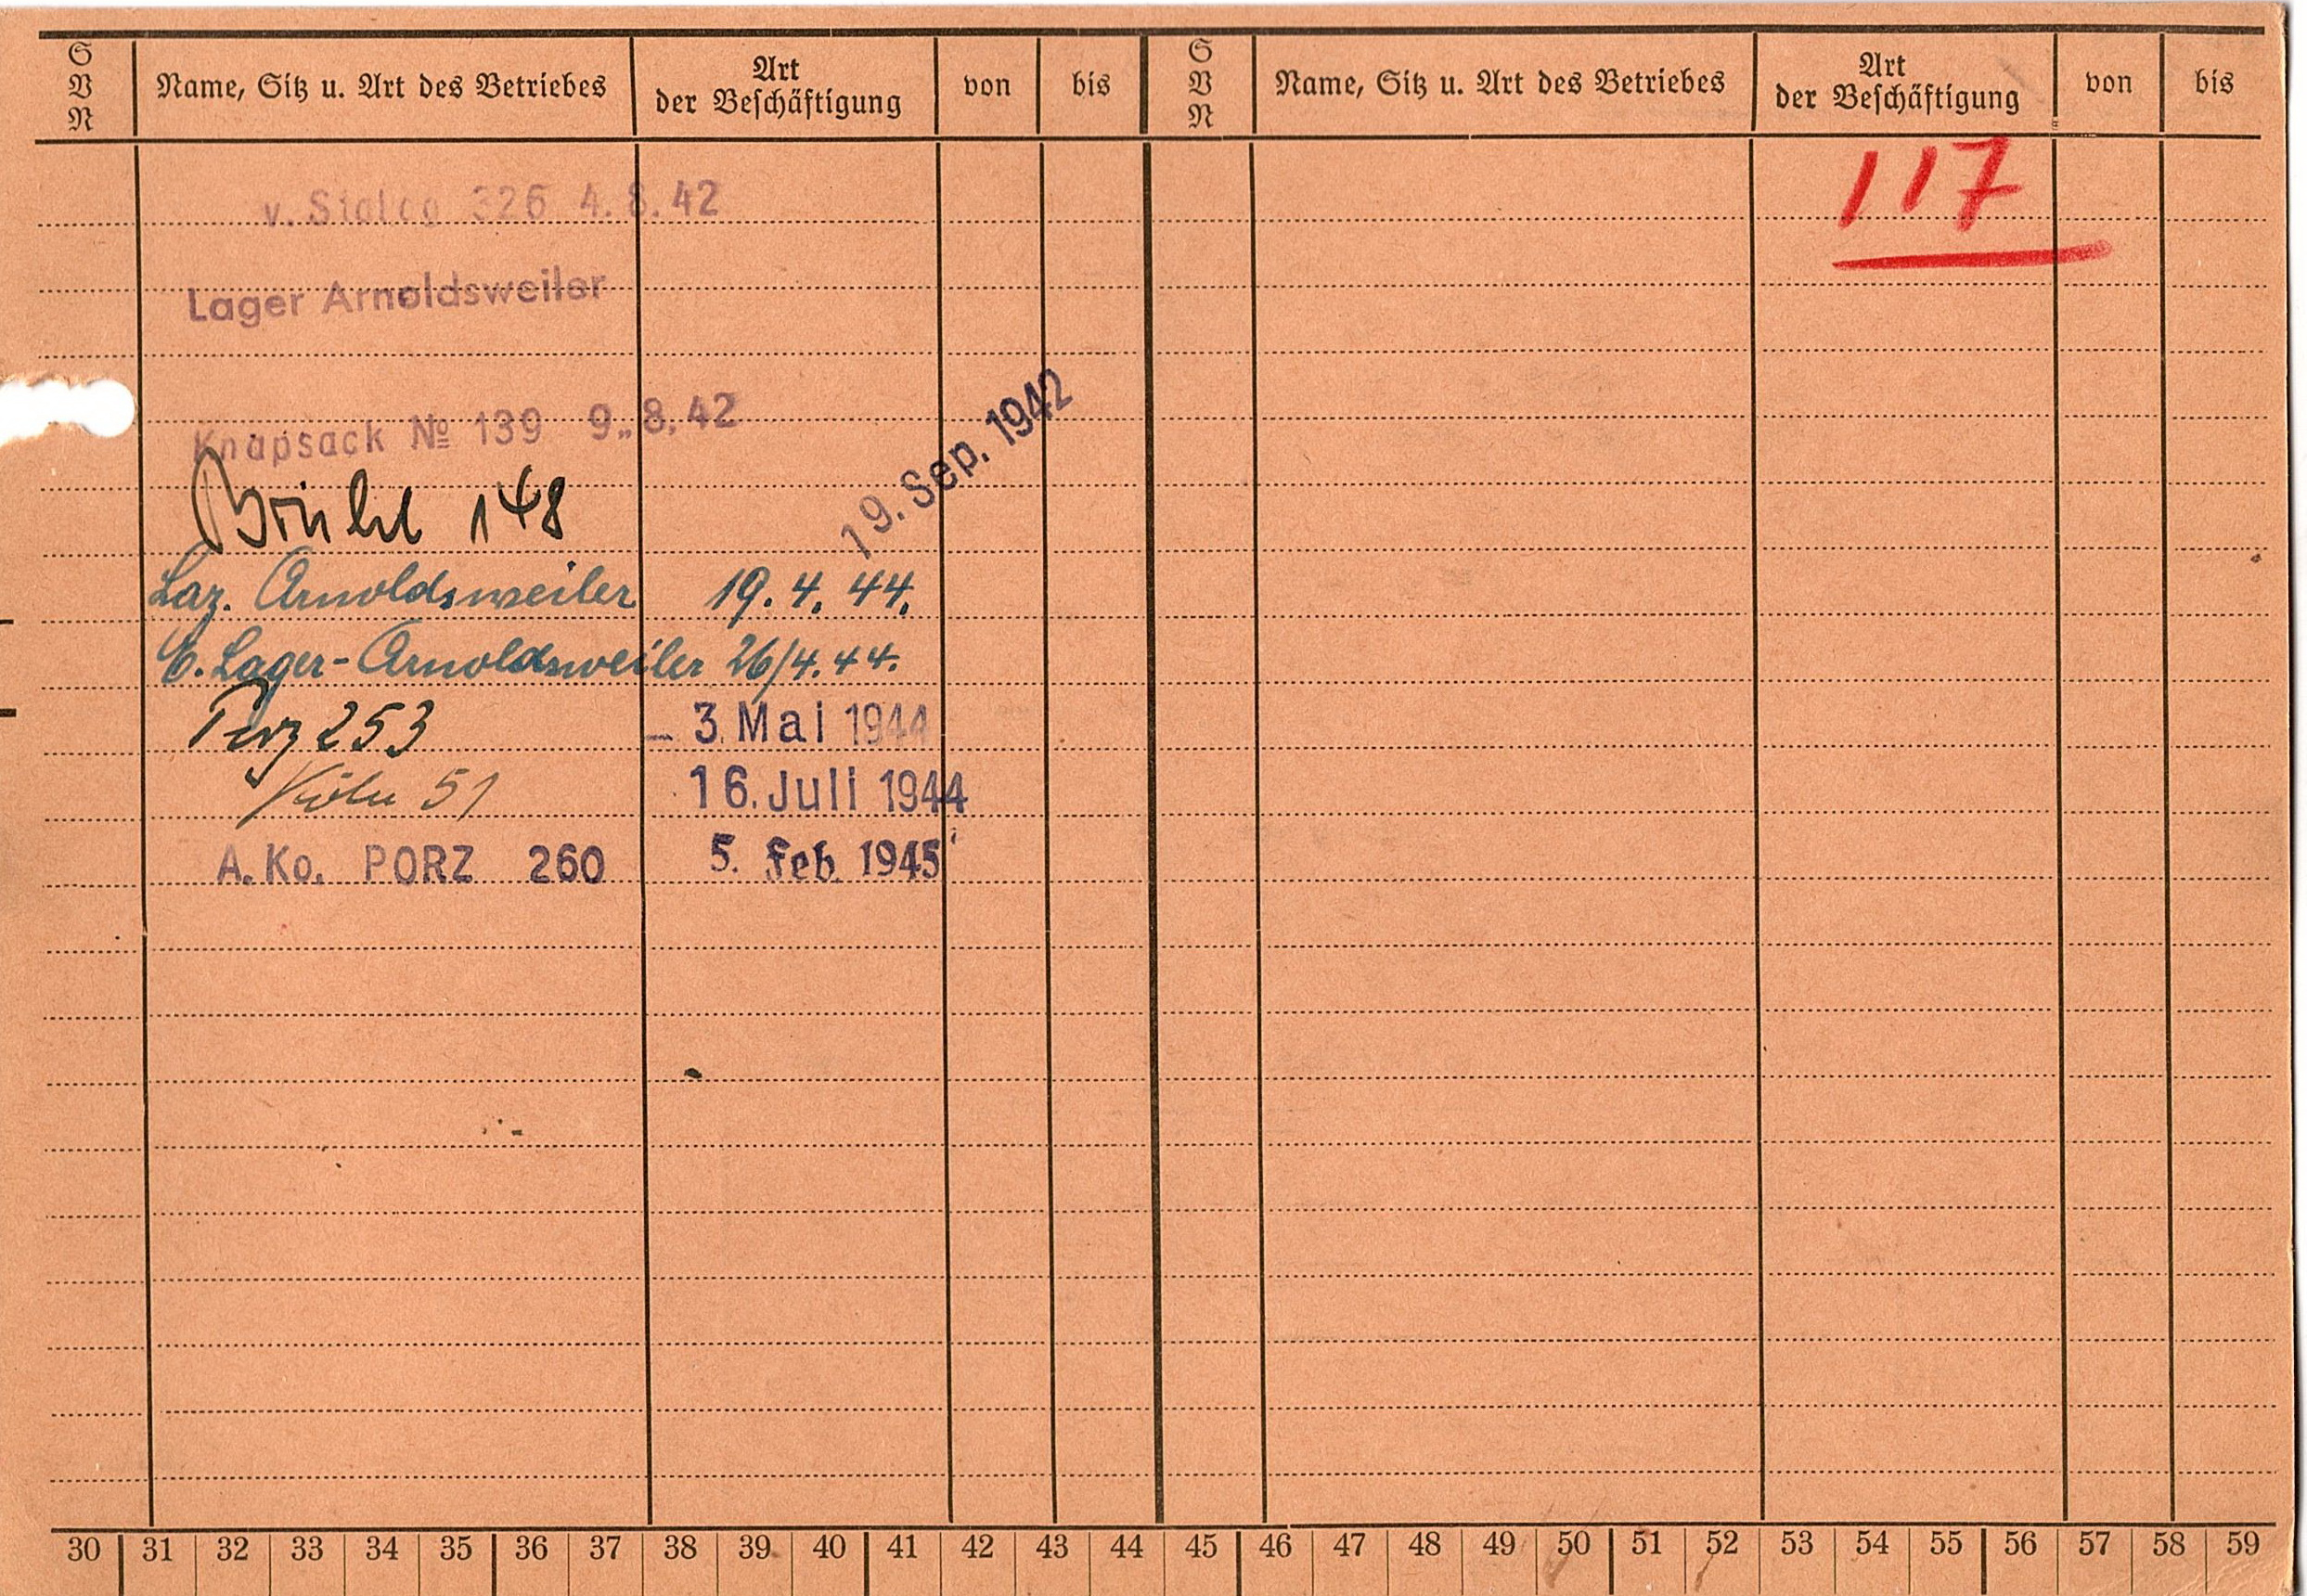 S V N Name, Sitz u. Art des Betriebes Art der Beschäftigung von bis S V N Name, Sitz u. Art des Betriebes Art der Beschäftigung von bis
117
v. Stalag 326 4. 8. 42
Lager Arnoldsweiler
Knapsack № 139 9. 8. 42
Brühl 148 19. Sep. 1942
Laz. Arnoldsweiler 19. 4. 44.
E. Lager-Arnoldsweiler 26/4. 44.
Porz 253 – 3. Mai 1944
Köln 51 16. Juli 1944
A. Ko. PORZ 260 5. Feb. 1945
30 31 32 33 34 35 36 37 38 39 40 41 42 43 44 45 46 47 48 49 50 51 52 53 54 55 56 57 58 59